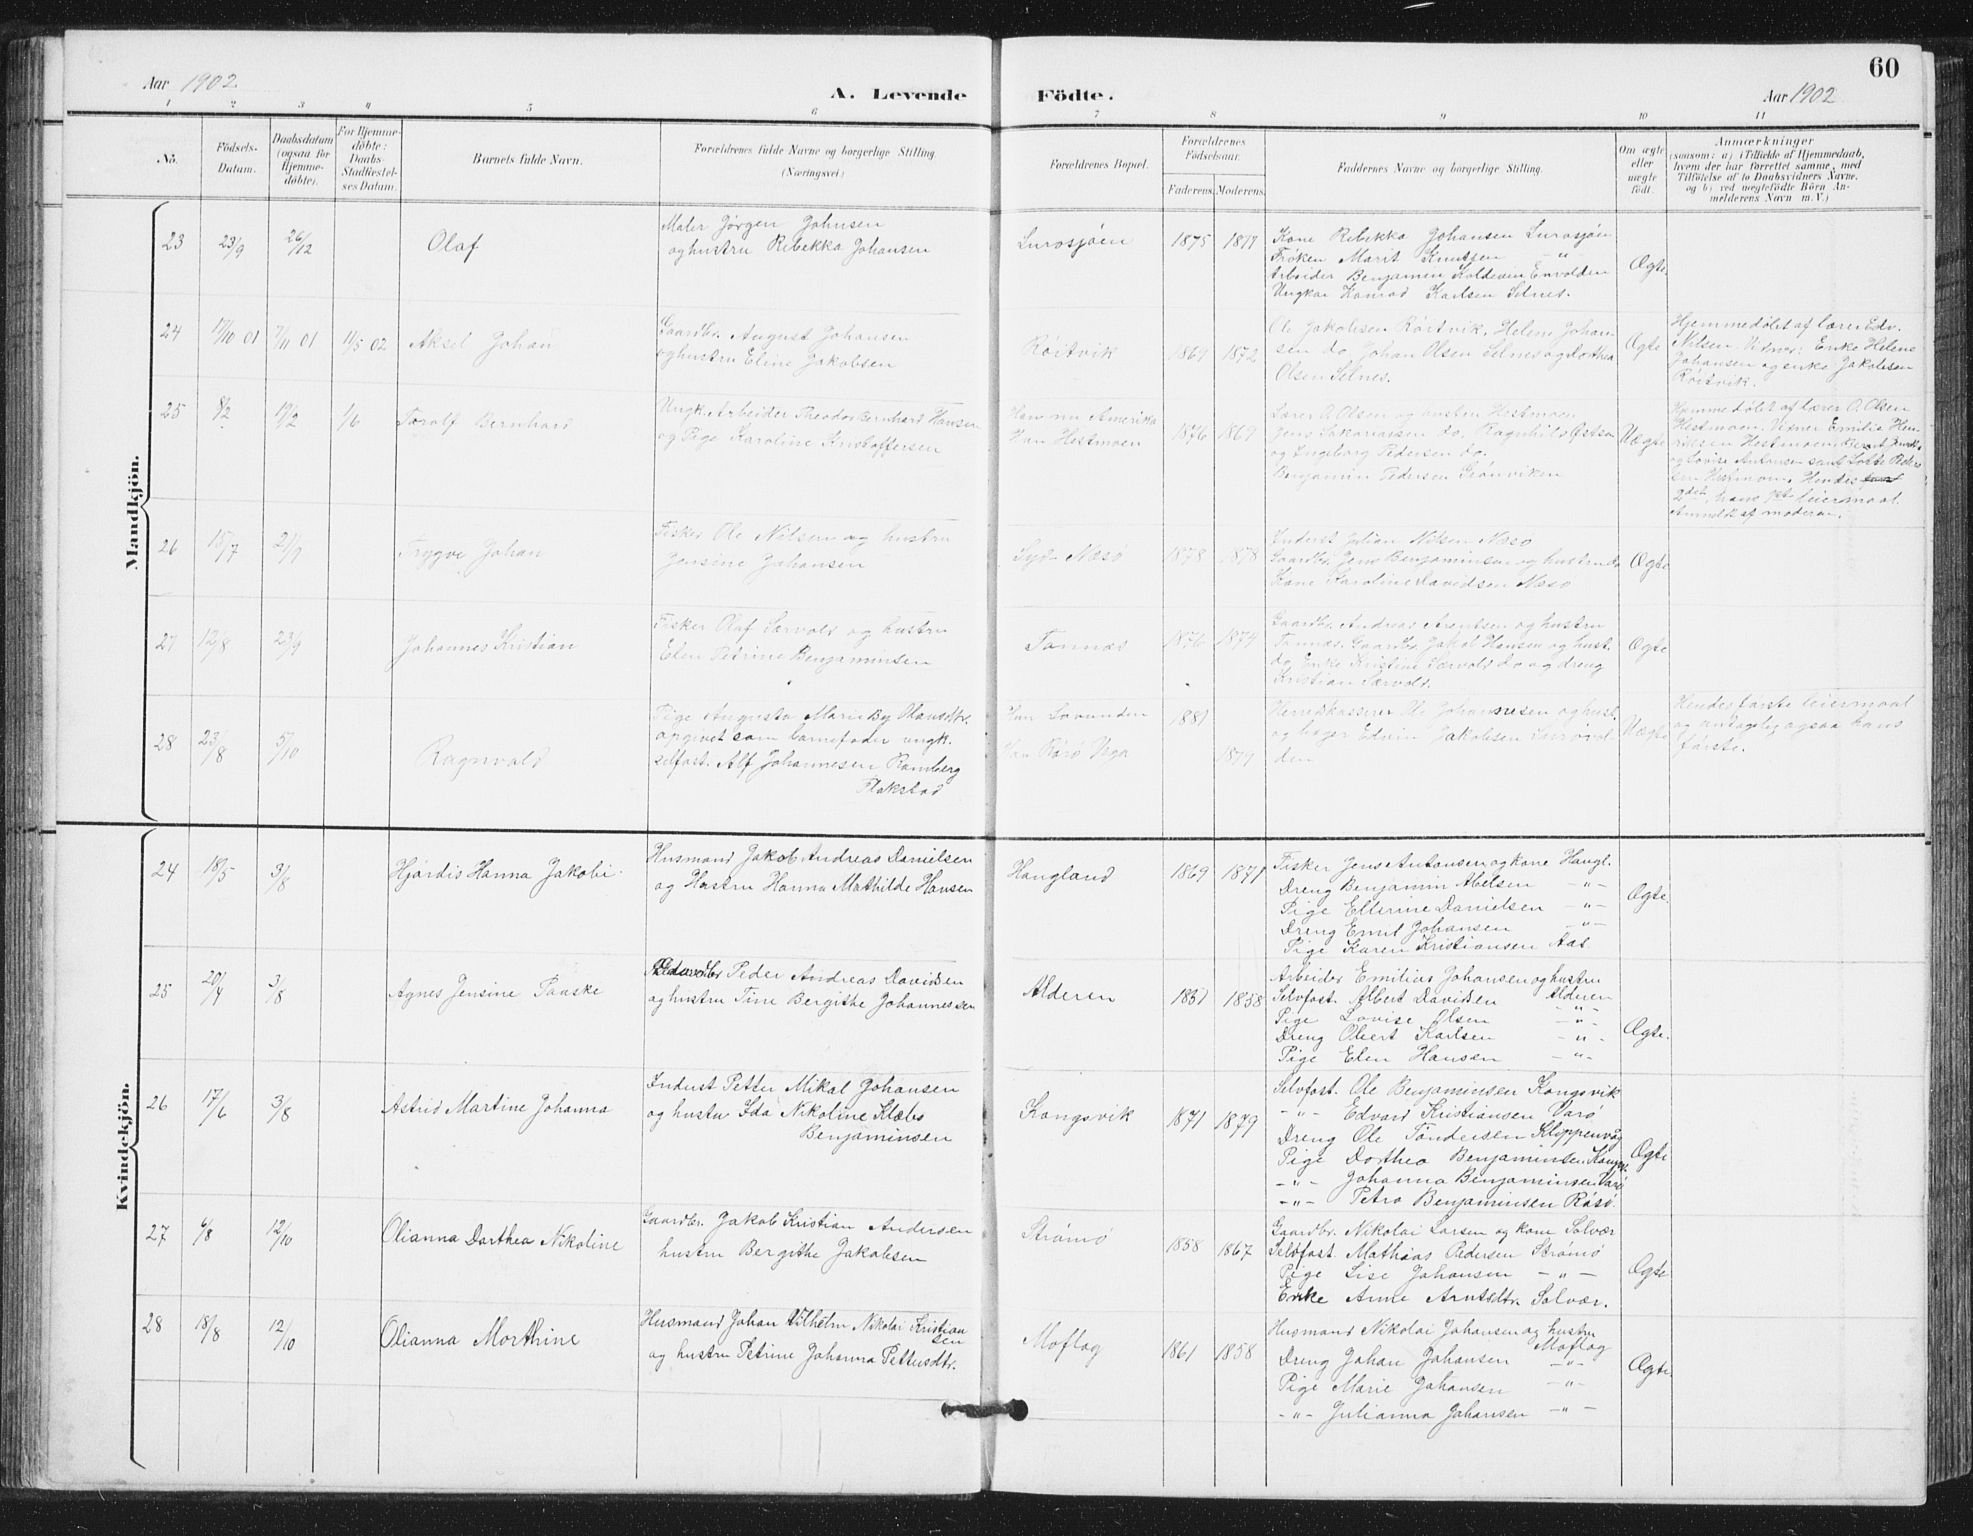 60
Aar 1902
A. Levende Födte.
Aar 1902
1 2 3 4 5 6 7 8 9 10 11
No.
Födsels-Datum.
Daabsdatum (ogsaa for Hjemmedöbte).
For Hjemmedöbte: Daabs-Stadfæstelses Datum.
Barnets fulde Navn.
Forældrenes fulde Navne og borgerlige Stilling (Næringsvei)
Forældrenes Bopæl.
Forældrenes Födselsaar.
Faderens. Moderens.
Faddernes Navne og borgerlige Stilling.
Om ægte eller uægte født.
Anmærkninger
(saasom: a) i Tilfælde af Hjemmedaab,
hvem der har forrettet samme, med
Tilföielse af to Daabsvidners Navne,
og b) ved uægtefödte Börn An-
melderens Navn m. V.)
Mandkjön.
23 23/9 26/12 Olaf
Maler Jørgen Johnsen
og hustru Rebekka Johansen
Lurosjøen 1875
Kone Rebekka Johansen Lurosjøen
Frøken Marit Knutsen -"-
Arbeider Benjamin Koldevin Envolden
Ungkar Konrad Karlsen Selnes.
Ægte
24 17/10 01 7/11 01 11/5 02 Aksel Johan
Gaardbr. August Johansen
og hustru Eline Jakobsen
Røitvik 1869 1872
Ole Jakobsen Røitvik, Helene Johan
sen do, Johan Olsen Selnes og Dorthea
Olsen Selnes.
Ægte
Hjemmedøbt af lærer Edv.
Nilsen. Vitner: Enke Helene
Johansen og enke Jakobsen
Røitvik.
25 8/2 17/2 1/6 Toralf Bernhard
Ungk. Arbeider Theodor Bernhard Hansen
og Pige Karoline Kristoffersen
Han nu Amerika
Hun Hestmoen
1876 1869
Lærer O. Olsen og hustru Hestmoen
Jens Sakariassen do, Ragnhild
og Ingeborg Pedersen do.
Benjamin Pedersen Strønviken
Uægte
Hjemmedøbt af lærer O. Olsen
Hestmoen. Vitner Emilie Hen
riksen Hestmoen,
og Lovise Antonsen samt Lotte Peder
sen Hestmoen. Hendes
2det, hans 1ste leiermaal.
Anmeldt af moderen.
26 15/7 21/9 Trygve Johan
Fisker Ole Nilsen og hustru
Jensine Johansen
Syd-Næsø 1878 1878
Inderst Julian Nilsen Næsø
Gaardbr. Jens Benjaminsen og hustru do
Kone Karoline Davidsen Næsø
Ægte
27 12/8 23/9 Johannes Kristian
Fisker Olaf Særvold og hustru
Elen Petrine Benjaminsen
Tonnæs 1876 1874
Gaardbr. Andreas Arentsen og hustru
Tonnæs. Gaardbr. Jakob Hansen og hust.
do, Enke Kristine Særvold do og dreng
Kristian Særvold.
Ægte
28 23/8 5/10 Ragnvald
Pige Augusta Marie By Olausdtr.
opgivet som barnefader ungk.
selfost. Alf Johannesen Ramberg
Flakstad
Lovunden
Rørø Vega
1881
1879
Herredskasserer Ole Johannesen og hust.
og bager Edvin Jakobsen
den
Uægte
Hendes første leiermaal
og antagelig ogsaa hans
første.
Kvindekjön.
24 18/5 3/8 Hjørdis Hanna Jakobi
Husmand Jakob Andreas Danielsen
og Hustru Hanna Mathilde Hansen
Haugland 1869 1871
Fisker Jens Antonsen og kone Haugl.
Dreng Benjamin Abelsen -"-
Pige Ellerine Danielsen -"-
Dreng Emil Johansen -"-
Pige Karen Kristiansen Aas.
Ægte.
25 20/4 3/8 Agnes Jensine Paaske
Peder Andreas Davidsen
og hustru Tine Bergithe Johannessen
Alderen 1851 1858
Arbeider Emilius Johansen og hustru
Selvfost. Albert Davidsen Alderen
Pige Lovise Olsen -"-
Dreng Obert Karlsen -"-
Pige Elen Hansen -"-
Ægte.
26 17/6 3/8 Astrid Martine Johanna
Inderst Petter Mikal Johansen
og hustu Ida Nikoline Klæbo
Benjaminsen
Kongsvik 1871 1879
Selvfost. Ole Benjaminsen Kongsvik
-"- Edvard Kristiansen Varø
Dreng Ole Tøndersen Klippenvåg
Pige Dorthea Benjaminsen Kongsv.
-"- Johanna Benjaminsen Varø
-"- Petra Benjaminsen Røsø.
Ægte
27 6/8 12/10 Olianna Dorthea Nikoline
Gaardbr. Jakob Kristian Andersen
hustru Bergithe Jakobsen
Strømø 1858 1867
Gaardbr. Nikolai Larsen og kone Solvær
Selvfost Mathias Pedersen Strømø
Pige Lise Johansen -"-
Enke Anne Arntsdtr. Solvær.
Ægte
28 18/8 12/10 Olianna Morthine
Husmand Johan Vilhelm Nikolai Kristian
sen
og hustru Petrine Johanna Pettersdtr.
Moflag 1861 1858
Husmand Nikolai Johansen og hustru
Moflag
Dreng Johan Johansen -"-
Pige Marie Johansen -"-
-"- Julianna Johansen -"-
Ægte